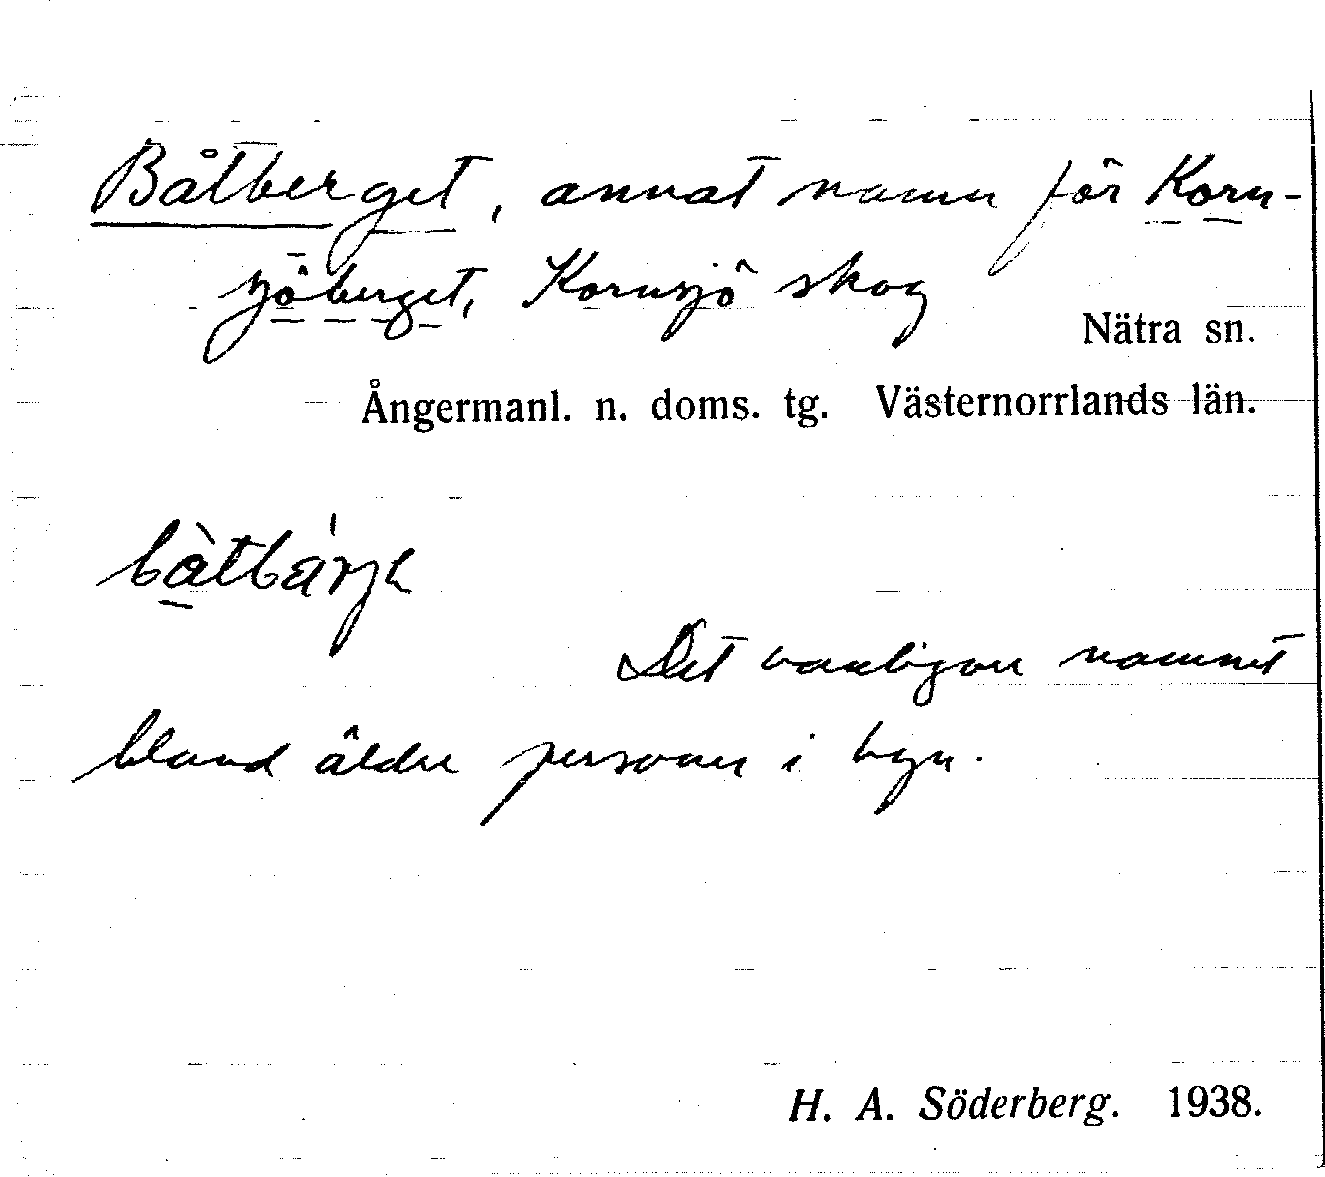 Båtberget, annat namn för Korn-
sjöberget, Kornsjö skog
Nätra sn.
Ångermanl. n. doms. tg. Västernorrlands län.
Det vanligare namnet
bland äldre personer i byn.
H. A. Söderberg. 1938.